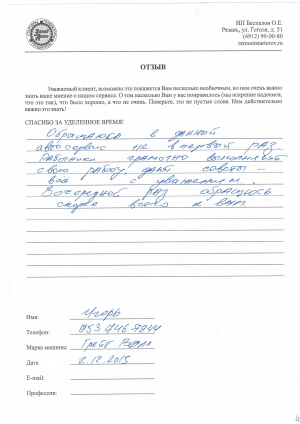 ИП Беспалов О.Е.
Рязань, ул. Гоголя, д. 51
(4912) 99-00-80
remontstarterov.ru
ОТЗЫВ
Уважаемый клиент, возможно это покажется Вам несколько необычным, но нам очень важно
знать ваше мнение о нашем сервисе. О том насколько Вам у нас понравилось (мы искренне надеемся,
что это так), что было хорошо, а что не очень. Поверьте, это не пустые слова. Нам действительно
важно это знать!
СПАСИБО ЗА УДЕЛЕННОЕ ВРЕМЯ!
Обращаюсь в данный
автосервис не в первый раз.
Работники грамотно выполняют
свою работу, дают советы –
всё с уважением.
В очередной раз обращусь
скорее всего к вам
Имя: Игорь
Телефон: 953 746 7944
Марка машины: Грейт Волл
Дата 2.12.2015
E-mail:
Профессия: